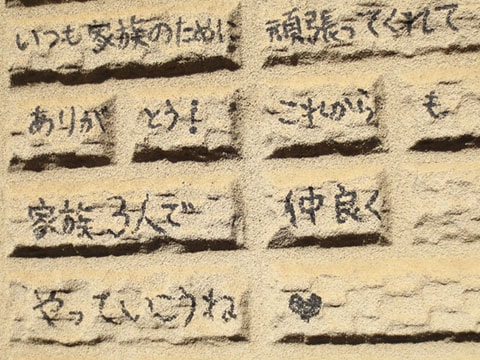 いつも家族のために 頑張ってくれて
ありがとう! これからも
家族3人で 仲良く
やっていこうね ♥